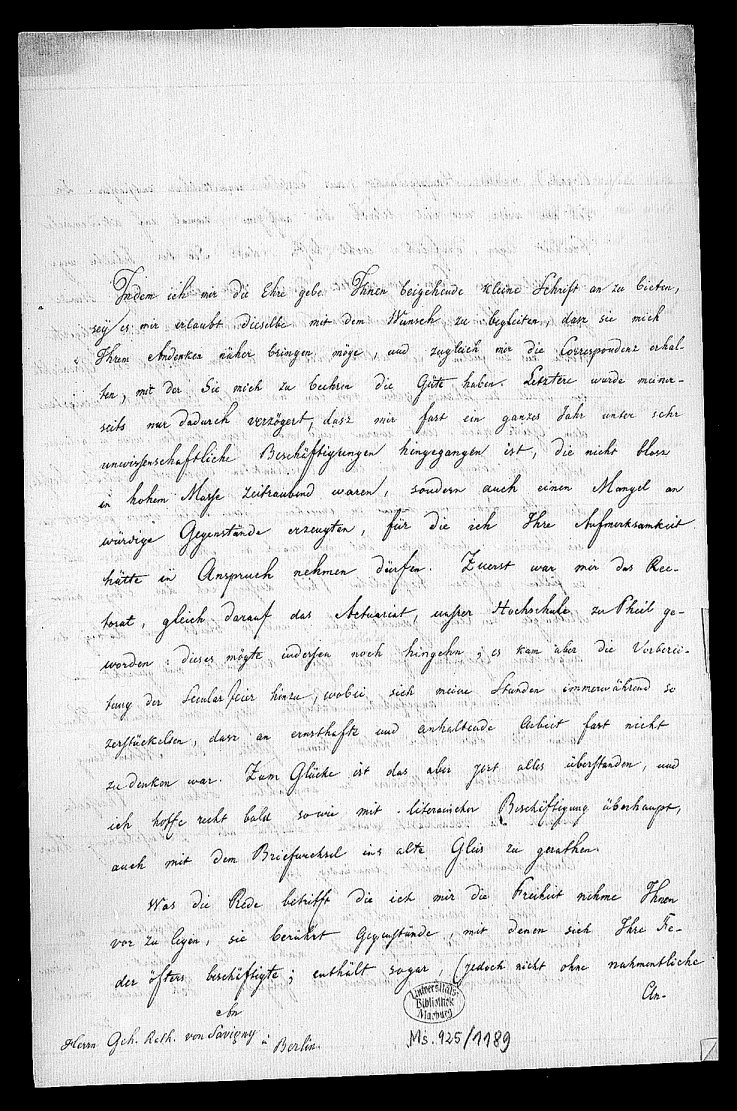 Indem ich mir die Ehre gebe Ihnen beigehende kleine Schrift an zu bieten,
sey es mir erlaubt dieselbe mit dem Wunsch zu begleiten, dasz sie mich
Ihrem Andenken näher bringen möge, und zugleich mir die Correspondenz erhal-
ten, mit der Sie mich zu beehren die Güte haben. Letztere wurde meiner-
seits nur dadurch verzögert, dasz mir fast ein ganzes Jahr unter sehr
unwissenschaftliche Beschäftigungen hingegangen ist, die nicht blosz
in hohem Masse zeitraubend waren, sondern auch einen Mangel an
würdige Gegenstände erzeugten, für die ich Ihre Aufmerksamkeit
hätte in Anspruch nehmen dürfen. Zuerst war mir das Rec-
torat, gleich darauf das Actuariat, unsrer Hochschule zu Theil ge-
worden: dieses mögte indessen noch hingehn; es kam aber die Vorberei-
tung der Secularfeier hinzu, wobei sich meine Stunden immerwährend so
zerstückelten, dasz an ernsthafte und anhaltende Arbeit fast nicht
zu denken war. Zum Glücke ist das aber jezt alles überstanden, und
ich hoffe recht bald so wie mit literarischer Beschäftigung überhaupt,
auch mit dem Briefwechsel ins alte Gleis zu gerathen.
Was die Rede betrifft die ich mir die Freiheit nehme Ihnen
vor zu legen, sie berührt Gegenstände, mit denen sich Ihre Fe-
der öfters beschäftigte; enthält sogar, (jedoch nicht ohne nahmentliche
An-
Herrn Geh. Rath. von Savigny
Berlin.
Universitäts-
Bibliothek
Marburg
Ms. 925/1189